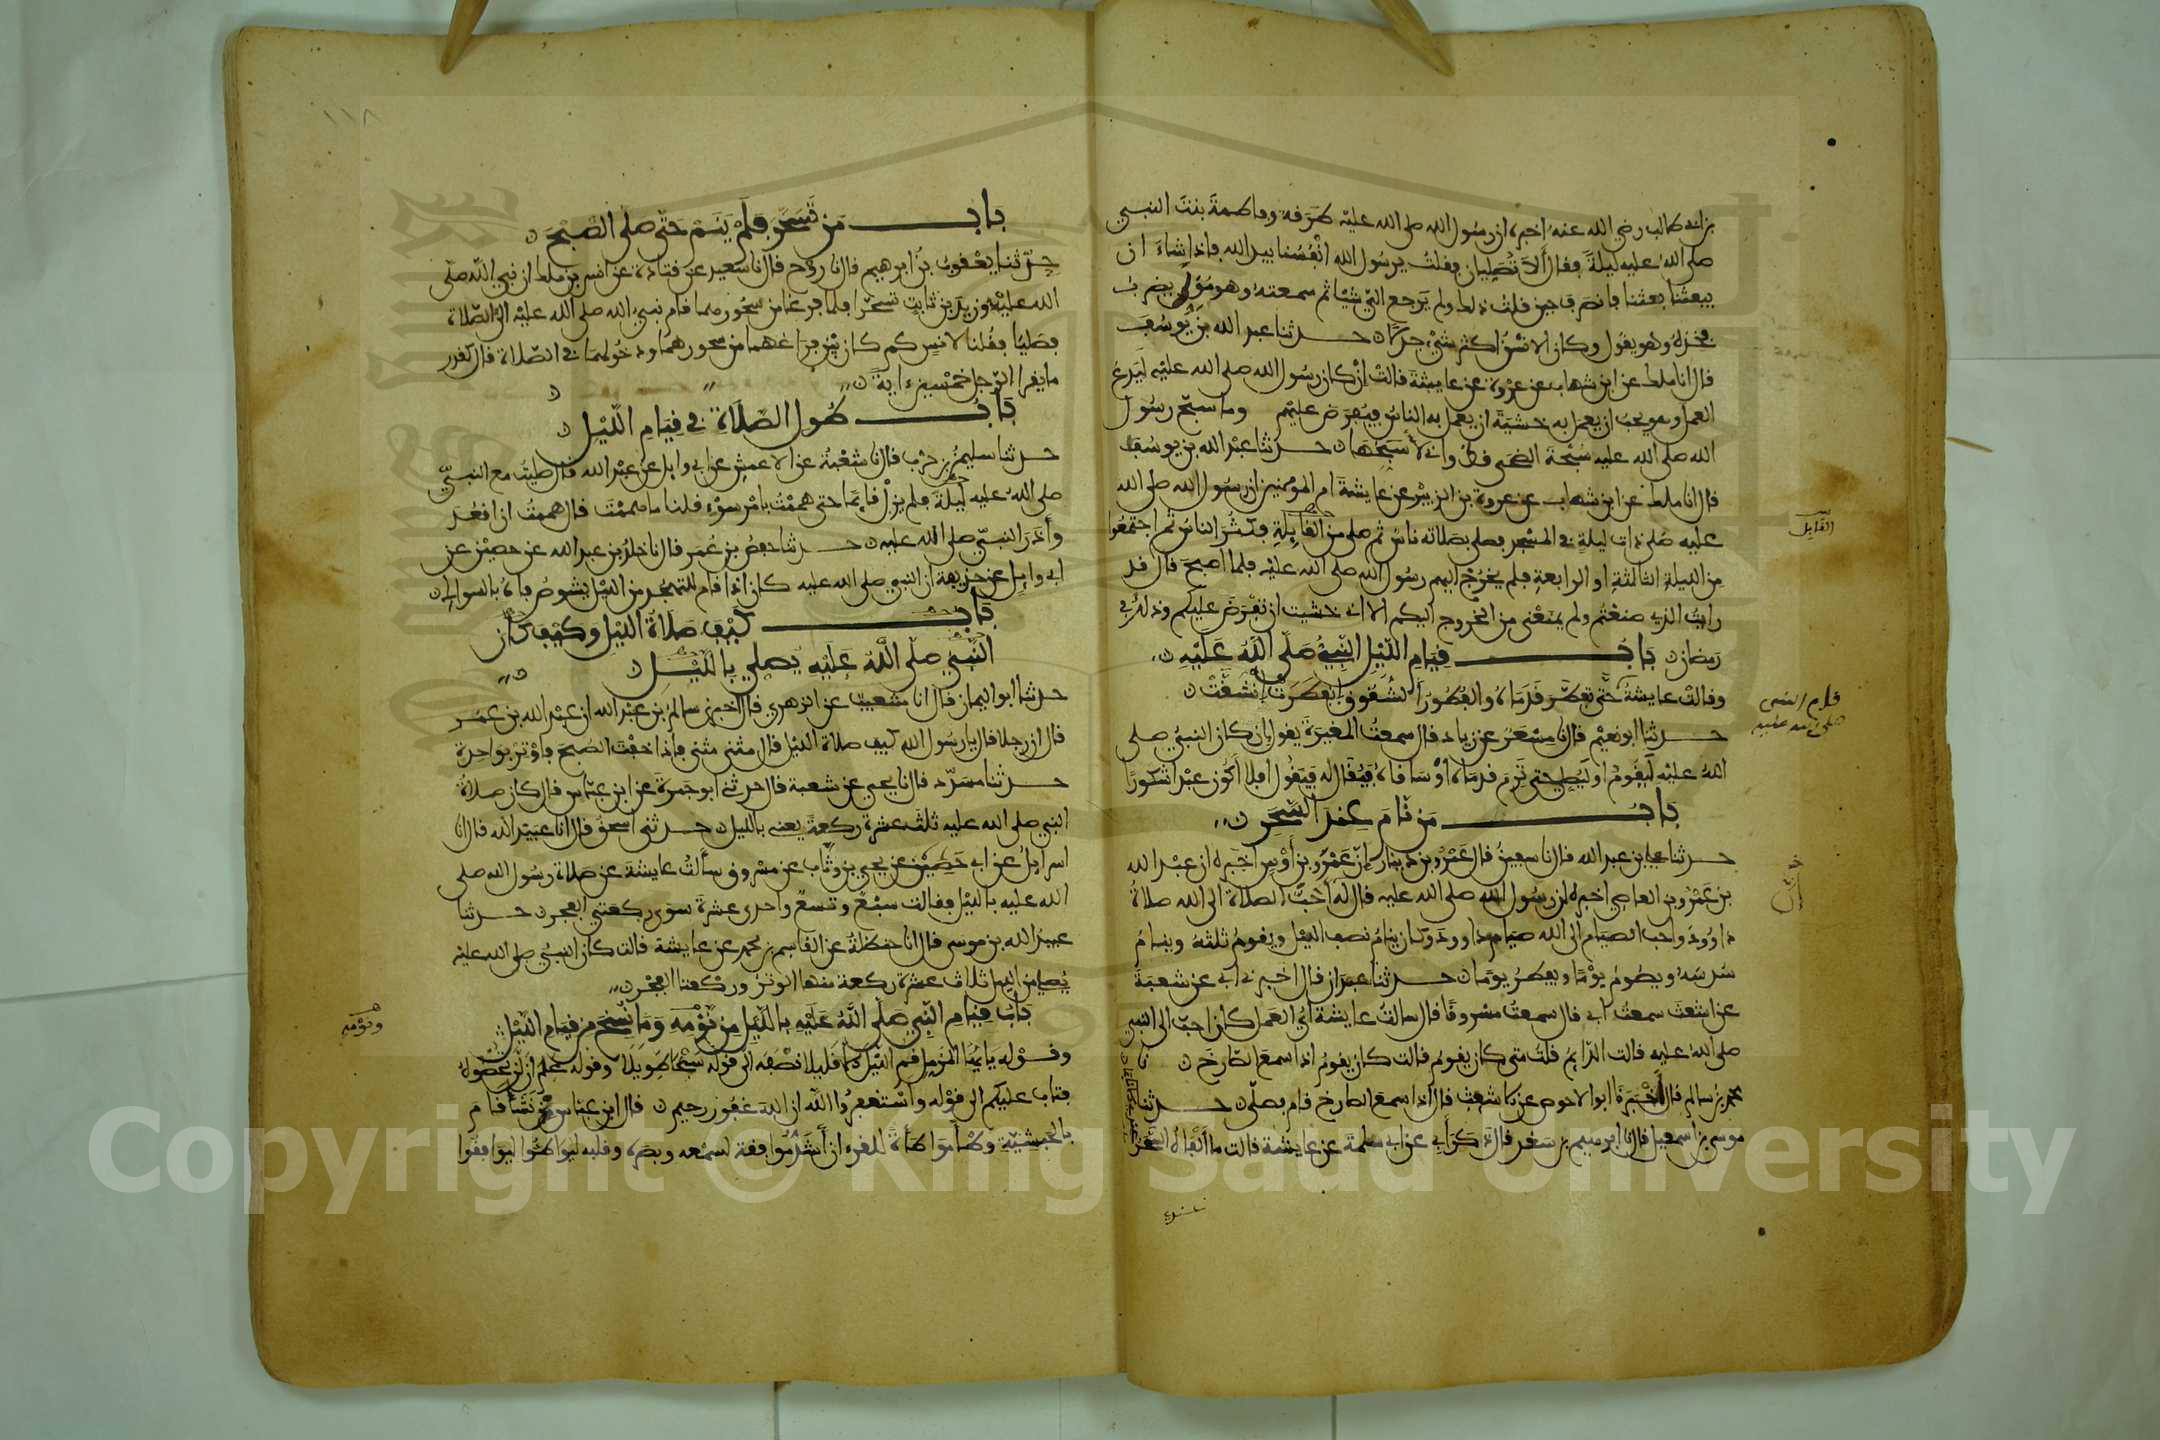 بن ابي طالب رضي الله عنه اخبره ان رسول الله صلى الله عليه طرقه وفاطمة بنت النبي
صلى الله عليه ليلة فقال ألا تصليان فقلت يرسول الله انفسنا بيد الله فاذا شاء ان
يبعثنا بعثنا فانصرف حين قلت ذلك ولم يرجع الي شيا ثم سمعته وهو مول يضرب
فخذه وهو يقول وكان الانسن اكثر شيء جدلا حدثنا عبد الله بن يوسف
قال انا ملك عن ابن شهاب عن عروة عن عايشة قالت ان كان رسول الله صلى الله عليه ليدع
العمل وهو يحب ان يعمل به خشية ان يعمل به الناس فيفرض عليهم وما سبح رسول
الله صلى الله عليه سبحة الضحى قط واني لأسبحها حدثنا عبد الله بن يوسف
قال انا ملك عن ابن شهاب عن عروة بن الزبير عن عايشة ام المومنين ان رسول الله صلى الله
عليه صلى ذات ليلة في المسجد فصلى بصلاته ناس ثم صلى من القابلة فكثر الناس ثم اجتمعوا
القابل
من الليلة الثالثة او الرابعة فلم يخرج اليهم رسول الله صلى الله عليه فلما اصبح قال قد
رايت الذي صنعتم ولم يمنعني من الخروج اليكم الا اني خشيت ان تفرض عليكم وذلك في
رمضان باب قيام الليل النبي صلى الله عليه
قيام النبي صلى الله عليه
وقالت عايشة حتى تفطر قدماه والفطور الشقوق انفطرت انشقت
حدثنا ابو نعيم قال نا مسعر عن زياد قال سمعت المغيرة يقول ان كان النبي صلى
الله عليه ليقوم او ليصلي حتى ترم قدماه او ساقاه فيقال له فيقول افلا اكون عبدا شكورا
باب من نام عند السحر
حدثنا علي بن عبد الله قال نا سفين قال عمرو بن دينار ان عمرو بن أوس اخبره ان عبد الله
بن عمرو بن العاصي اخبره ان رسول الله صلى الله عليه قال له أحب الصلاة الى الله صلاة
داوود واحب الصيام الى الله صيام داوود وكان ينام نصف الليل ويقوم ثلثه وينام
سدسه ويصوم يوما ويفطر يوما حدثنا عبدان قال اخبرني ابي عن شعبة
عن اشعث سمعت ابي قال سمعت مسروقا قال سالت عايشة اي العمل كان احب الى النبي
صلى الله عليه قالت الدايم قلت متى كان يقوم قالت كان يقوم اذا سمع الصارخ نا
محمد بن سالم قال أخبرنا ابو الاحوص عن الاشعث قال اذا سمع الصارخ قام فصلى حدثنا
موسى بن اسمعيل قال نا ابرهيم بن سعد قال ذكر أبي عن ابي سلمة عن عايشة قالت ما ألفاه السحر
عندي
١١٨
باب من تسحر فلم ينم حتى صلى الصبح
حدثنا يعقوب بن ابرهيم قال نا روح قال نا سعيد عن قتادة عن انس بن ملك ان نبي الله صلى
الله عليه وزيد بن ثابت تسحرا فلما فرغا من سحورهما قام نبي الله صلى الله عليه الى الصلاة
فصليا فقلنا لانس كم كان بين فراغهما من سحورهما ودخولهما في الصلاة قال كقدر
ما يقرا الرجل خمسين ءاية
باب طول الصلاة في قيام الليل
حدثنا سليمن بن حرب قال نا شعبة عن الاعمش عن ابي وايل عن عبد الله قال صليت مع النبي
صلى الله عليه ليلة فلم يزل قايما حتى هممت بامر سوء قلنا ما هممت قال هممت ان اقعد
وأذر النبي صلى الله عليه حدثنا حفص بن عمر قال نا خلد بن عبد الله عن حصين عن
ابي وايل عن حذيفة ان النبي صلى الله عليه كان اذا قام للتهجد من الليل يشوص فاه بالسواك
باب كيف صلاة الليل وكيف كان
النبي صلى الله عليه يصلي بالليل
حدثنا ابو اليمان قال انا شعيب عن الزهري قال اخبرني سالم بن عبد الله ان عبد الله بن عمر
قال ان رجلا قال يا رسول الله كيف صلاة الليل قال مثنى مثنى فاذا خفت الصبح فاوتر بواحدة
حدثنا مسدد قال نا يحيى عن شعبة قال حدثني ابو جمرة عن ابن عباس قال كان صلاة
النبي صلى الله عليه ثلث عشرة ركعة يعني بالليل حدثني اسحق قال انا عبيد الله قال انا
اسرايل عن ابي حصين عن يحيى بن وثاب عن مسروق سألت عايشة عن صلاة رسول الله صلى
الله عليه بالليل فقالت سبع وتسع واحدى عشرة سوى ركعتي الفجر حدثنا
عبيد الله بن موسى قال انا حنظلة عن القاسم بن محمد عن عايشة قالت كان النبي صلى الله عليه
يصلي من الليل ثلاث عشرة ركعة منها الوتر وركعتا الفجر
باب قيام النبي صلى الله عليه بالليل من نومه وما نسخ من قيام الليل
ونومه
وقوله يا يها المزمل قم الليل الا قليلا نصفه الى قوله سبحا طويلا وقوله علم ان لن تحصوه
فتاب عليكم الى قوله واستغفروا الله ان الله غفور رحيم قال ابن عباس نشأ قام
بالحبشية وطأ مواطأة للقرءان أشد موافقة لسمعه وبصره وقلبه ليواطئوا ليوافقوا
Copyright © King Saud University